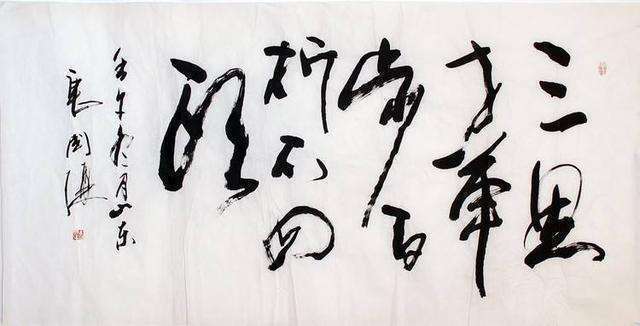 三思
方举
步百
折不回
頭
壬午 月山东